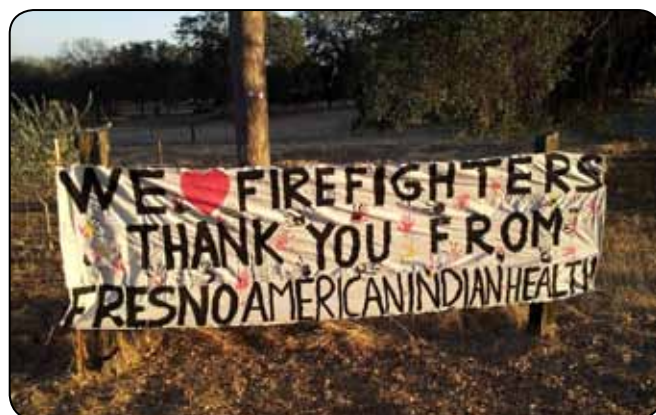 WE ♥ FIREFIGHTERS
THANK YOU FROM
FRESNO AMERICAN INDIAN HEALTH